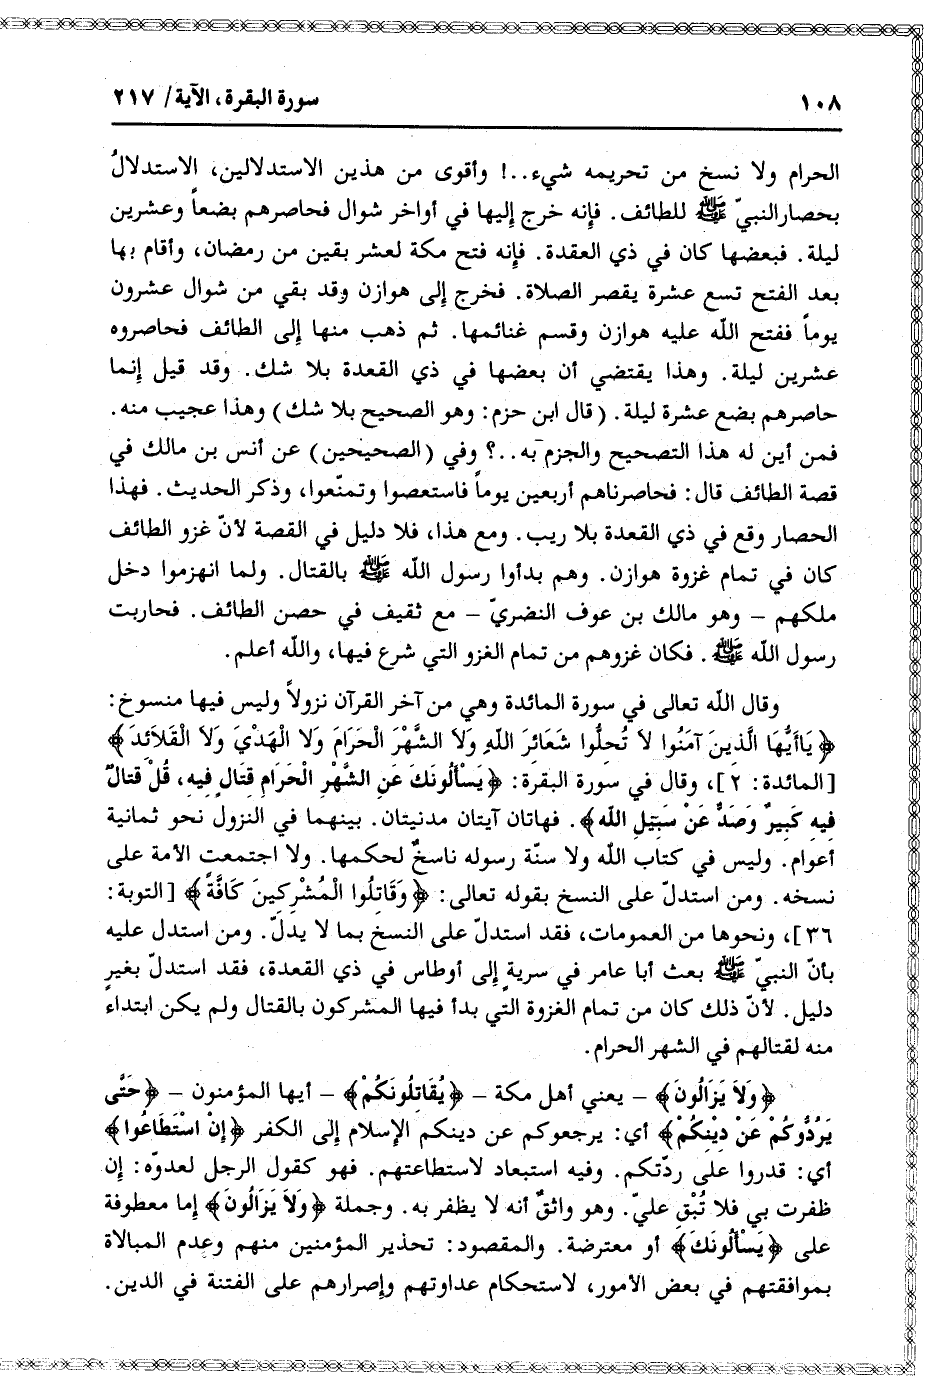 ١٠٨ سورة البقرة، الآية/ ٢١٧
الحرام ولا نسخ من تحريمه شيء..! وأقوى من هذين الاستدلالين، الاستدلالُ
بحصارالنبيّ ﷺ للطائف. فإنه خرج إليها في أواخر شوال فحاصرهم بضعاً وعشرين
ليلة. فبعضها كان في ذي العقدة. فإنه فتح مكة لعشر بقين من رمضان، وأقام بها
بعد الفتح تسع عشرة يقصر الصلاة. فخرج إلى هوازن وقد بقي من شوال عشرون
يوماً ففتح اللّه عليه هوازن وقسم غنائمها. ثم ذهب منها إلى الطائف فحاصروه
عشرين ليلة. وهذا يقتضي أن بعضها في ذي القعدة بلا شك. وقد قيل إنما
حاصرهم بضع عشرة ليلة. (قال ابن حزم: وهو الصحيح بلا شك) وهذا عجيب منه.
فمن أين له هذا التصحيح والجزم به..؟ وفي (الصحيحين) عن أنس بن مالك في
قصة الطائف قال: فحاصرناهم أربعين يوماً فاستعصوا وتمنّعوا، وذكر الحديث. فهذا
الحصار وقع في ذي القعدة بلا ريب. ومع هذا، فلا دليل في القصة لأنّ غزو الطائف
كان في تمام غزوة هوازن. وهم بدأوا رسول اللّه ﷺ بالقتال. ولما انهزموا دخل
ملكهم – وهو مالك بن عوف النضريّ – مع ثقيف في حصن الطائف. فحاربت
رسول اللّه ﷺ. فكان غزوهم من تمام الغزو التي شرع فيها، واللّه أعلم.
وقال اللّه تعالى في سورة المائدة وهي من آخر القرآن نزولاً وليس فيها منسوخ:
﴿يَاأَيُّهَا الَّذِينَ آمَنُوا لاَ تُحِلُّوا شَعَائِرَ اللّهِ وَلاَ الشَّهْرَ الْحَرَامَ وَلاَ الْهَدْيَ وَلاَ الْقَلاَئِدَ﴾
[المائدة: ٢]، وقال في سورة البقرة: ﴿يَسْأَلُونَكَ عَنِ الشَّهْرِ الْحَرَامِ قِتَالٍ فِيهِ، قُلْ قِتالٌ
فِيهِ كَبِيرٌ وَصَدٌّ عَنْ سَبَيِلِ اللّه﴾. فهاتان آيتان مدنيتان. بينهما في النزول نحو ثمانية
أعوام. وليس في كتاب اللّه ولا سنّة رسوله ناسخٌ لحكمها. ولا اجتمعت الأمة على
نسخه. ومن استدلّ على النسخ بقوله تعالى: ﴿وَقَاتِلُوا الْمُشْرِكِينَ كَافَّةً﴾ [التوبة:
٣٦]، ونحوها من العمومات، فقد استدلّ على النسخ بما لا يدلّ. ومن استدل عليه
بأنّ النبيّ ﷺ بعث أبا عامر في سريةٍ إلى أوطاس في ذي القعدة، فقد استدلّ بغيرِ
دليل. لأنّ ذلك كان من تمام الغزوة التي بدأ فيها المشركون بالقتال ولم يكن ابتداء
منه لقتالهم في الشهر الحرام.
﴿وَلاَ يَزَالُونَ﴾ – يعني أهل مكة – ﴿يُقَاتِلُونَكُمْ﴾ – أيها المؤمنون – ﴿حَتَّى
يَرُدُّوكُمْ عَنْ دِيْنِكُمْ﴾ أي: يرجعوكم عن دينكم الإسلام إلى الكفر ﴿إِنْ اسْتَطَاعُوا﴾
أي: قدروا على ردّتكم. وفيه استبعاد لاستطاعتهم. فهو كقول الرجل لعدوّه: إن
ظفرت بي فلا تُبْقِ عليّ. وهو واثقٌ أنه لا يظفر به. وجملة ﴿وَلاَ يَزَالُونَ﴾ إما معطوفة
على ﴿يَسْأَلُونَكَ﴾ أو معترضة. والمقصود: تحذير المؤمنين منهم وعدم المبالاة
بموافقتهم في بعض الأمور، لاستحكام عداوتهم وإصرارهم على الفتنة في الدين.